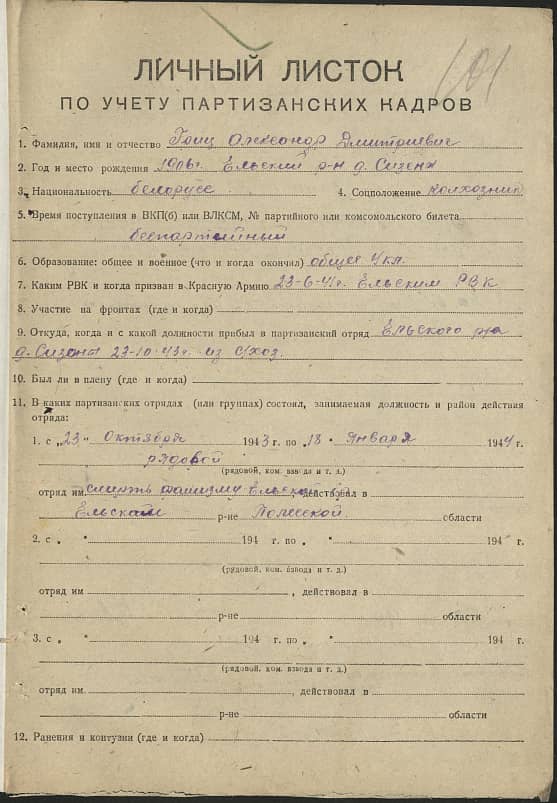 101
ЛИЧНЫЙ ЛИСТОК
ПО УЧЕТУ ПАРТИЗАНСКИХ КАДРОВ
1. Фамилия, имя и отчество Гриц Александр Дмитриевич
2. Год и место рождения 1906г. Ельский р-н д.
3. Национальность белорусс. 4. Соцположение колхозник
5. Время поступления в ВКП(б) или ВЛКСМ, № партийного или комсомольского билета
беспартийный
6. Образование: общее и военное (что и когда окончил) общее 4 кл.
7. Каким РВК и когда призван в Красную Армию 23-6-41г. Ельским РВК
8. Участие на фронтах (где и когда)
9. Откуда, когда и с какой должности прибыл в партизанский отряд Ельского р-на
д. 23-10-43г. из с/хоз.
10. Был ли в плену (где и когда)
11. В каких партизанских отрядах (или группах) состоял, занимаемая должность и район действия
отряда:
1. с „23" Октября 1943 г. по „18" Января 1944 г.
рядовой
(рядовой, ком. взвода и т. д.)
отряд им смерть фашизму , действовал в
Ельском р-не Полесской. области
2. с „ " 194 г. по „ " 194 г.
(рядовой, ком. взвода и т. д.)
отряд им , действовал в
р-не области
3. с „ " 194 г. по „ " 194 г.
(рядовой, ком. взвода и т. д.)
отряд им , действовал в
р-не области
12. Ранения и контузии (где и когда)